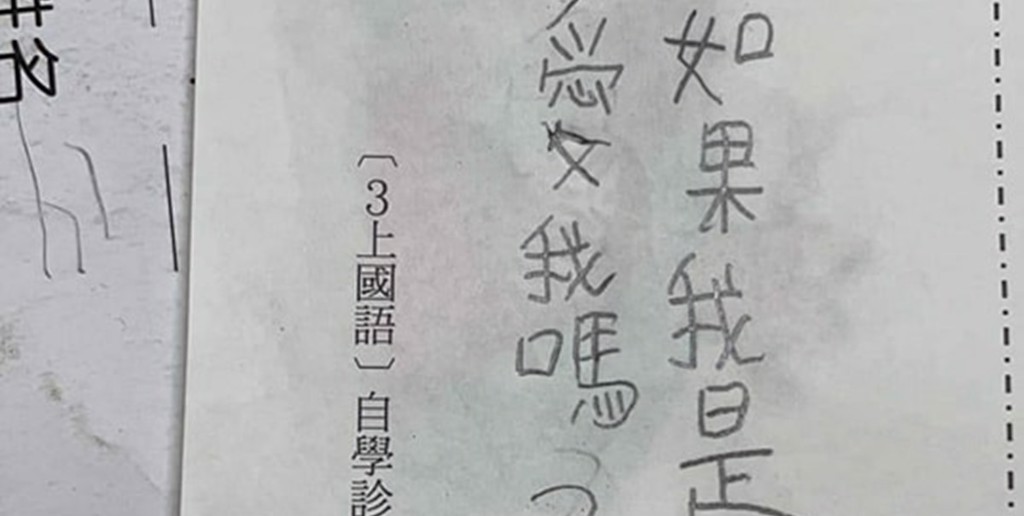 如果我是
愛我嗎？
〔3上國語〕自學診